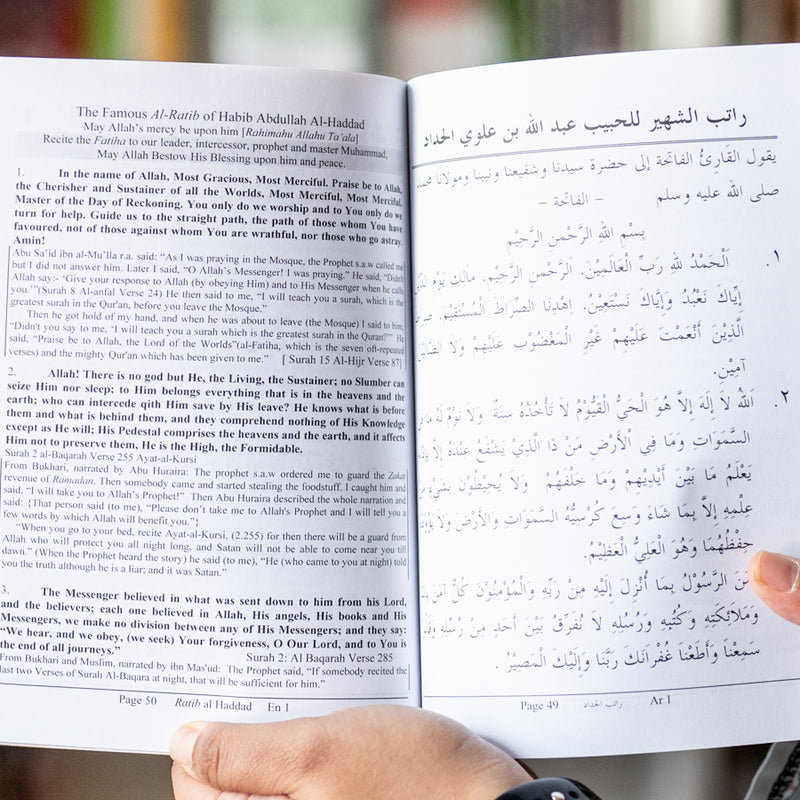 The Famous Al-Ratib of Habib Abdullah Al-Haddad
May Allah's mercy be upon him [Rahimahu Allahu Ta'ala]
Recite the Fatiha to our leader, intercessor, prophet and master Muhammad,
May Allah Bestow His Blessing upon him and peace.
1. In the name of Allah, Most Gracious, Most Merciful. Praise be to Allah,
the Cherisher and Sustainer of all the Worlds, Most Merciful, Most Merciful,
Master of the Day of Reckoning. You only do we worship and to You only do we
turn for help. Guide us to the straight path, the path of those whom You have
favoured, not of those against whom You are wrathful, nor those who go astray.
Amin!
Abu Sa'id ibn al-Mu'lla r.a. said: “As I was praying in the Mosque, the Prophet s.a.w called me
but I did not answer him. Later I said, “O Allah's Messenger! I was praying.” He said, “Didn't
Allah say:- ‘Give your response to Allah (by obeying Him) and to His Messenger when he calls
you.’”(Surah 8 Al-anfal Verse 24) He then said to me, “I will teach you a surah, which is the
greatest surah in the Qur'an, before you leave the Mosque.”
Then he got hold of my hand, and when he was about to leave (the Mosque) I said to him,
“Didn't you say to me, ‘I will teach you a surah which is the greatest surah in the Quran?’” He
said, “Praise be to Allah, the Lord of the Worlds”(al-Fatiha, which is the seven oft-repeated
verses) and the mighty Qur'an which has been given to me.” [ Surah 15 Al-Hijr Verse 87]
2. Allah! There is no god but He, the Living, the Sustainer; no Slumber can
seize Him nor sleep; to Him belongs everything that is in the heavens and the
earth; who can intercede qith Him save by His leave? He knows what is before
them and what is behind them, and they comprehend nothing of His Knowledge
except as He will; His Pedestal comprises the heavens and the earth, and it affects
Him not to preserve them, He is the High, the Formidable.
Surah 2 al-Baqarah Verse 255 Ayat-al-Kursi
From Bukhari, narrated by Abu Huraira: The prophet s.a.w ordered me to guard the Zakat
revenue of Ramadan. Then somebody came and started stealing the foodstuff. I caught him and
said, “I will take you to Allah's Prophet!” Then Abu Huraira described the whole narration and
said: {That person said (to me), “Please don't take me to Allah's Prophet and I will tell you a
few words by which Allah will benefit you.”}
“When you go to your bed, recite Ayat-al-Kursi, (2.255) for then there will be a guard from
Allah who will protect you all night long, and Satan will not be able to come near you till
dawn.” (When the Prophet heard the story) he said (to me), “He (who came to you at night) told
you the truth although he is a liar; and it was Satan.”
3. The Messenger believed in what was sent down to him from his Lord,
and the believers; each one believed in Allah, His angels, His books and His
Messengers, we make no division between any of His Messengers; and they say:
“We hear, and we obey, (we seek) Your forgiveness, O Our Lord, and to You is
the end of all journeys.” Surah 2: Al Baqarah Verse 285
From Bukhari and Muslim, narrated by ibn Mas'ud: The Prophet said, “If somebody recited the
last two Verses of Surah Al-Baqara at night, that will be sufficient for him.”
Page 50 Ratib al Haddad En 1
راتب الشهير للحبيب عبد الله بن علوي الحداد
يقول القَارِئُ الفاتحة إلى حضرة سيدنا وشفيعنا ونبينا ومولانا محمد
صلى الله عليه وسلم - الفاتحة -
بِسْمِ اللهِ الرَّحْمنِ الرَّحِيْمِ
١. اَلْحَمْدُ لِلَّهِ رَبِّ الْعَالَمِيْنَ. الرَّحْمنِ الرَّحِيْمِ. مالِكِ يَوْمِ الدِّيْنِ
إِيَّاكَ نَعْبُدُ وَإِيَّاكَ نَسْتَعِيْنُ. اِهْدِنَا الصِّرَاطَ الْمُسْتَقِيْمَ. صِرَاطَ
الَّذِيْنَ أَنْعَمْتَ عَلَيْهِمْ غَيْرِ الْمَغْضُوْبِ عَلَيْهِمْ وَلاَ الضَّالِّيْنَ
آمِيْنِ.
٢. اَللهُ لاَ إِلهَ إِلاَّ هُوَ الْحَيُّ الْقَيُّوْمُ لاَ تَأْخُذُهُ سِنَةٌ وَلاَ نَوْمٌ لَهُ مَا فِي
السَّمَوَاتِ وَمَا فِي الْأَرْضِ مَنْ ذَا الَّذِيْ يَشْفَعُ عِنْدَهُ إِلاَّ بِإِذْنِهِ
يَعْلَمُ مَا بَيْنَ أَيْدِيْهِمْ وَمَا خَلْفَهُمْ وَلاَ يُحِيْطُوْنَ بِشَيْءٍ مِنْ
عِلْمِهِ إِلاَّ بِمَا شَاءَ وَسِعَ كُرْسِيُّهُ السَّمَوَاتِ وَالْأَرْضَ وَلاَ يَؤُدُهُ
حِفْظُهُمَا وَهُوَ الْعَلِيُّ الْعَظِيْمُ.
الرَّسُوْلُ بِمَا أُنْزِلَ إِلَيْهِ مِنْ رَبِّهِ وَالْمُؤْمِنُوْنَ كُلٌّ آمَنَ
وَمَلاَئِكَتِهِ وَكُتُبِهِ وَرُسُلِهِ لاَ نُفَرِّقُ بَيْنَ أَحَدٍ مِنْ رُسُلِهِ
سَمِعْنَا وَأَطَعْنَا غُفْرَانَكَ رَبَّنَا وَإِلَيْكَ الْمَصِيْرُ.
Page 49 راتب الحداد Ar 1